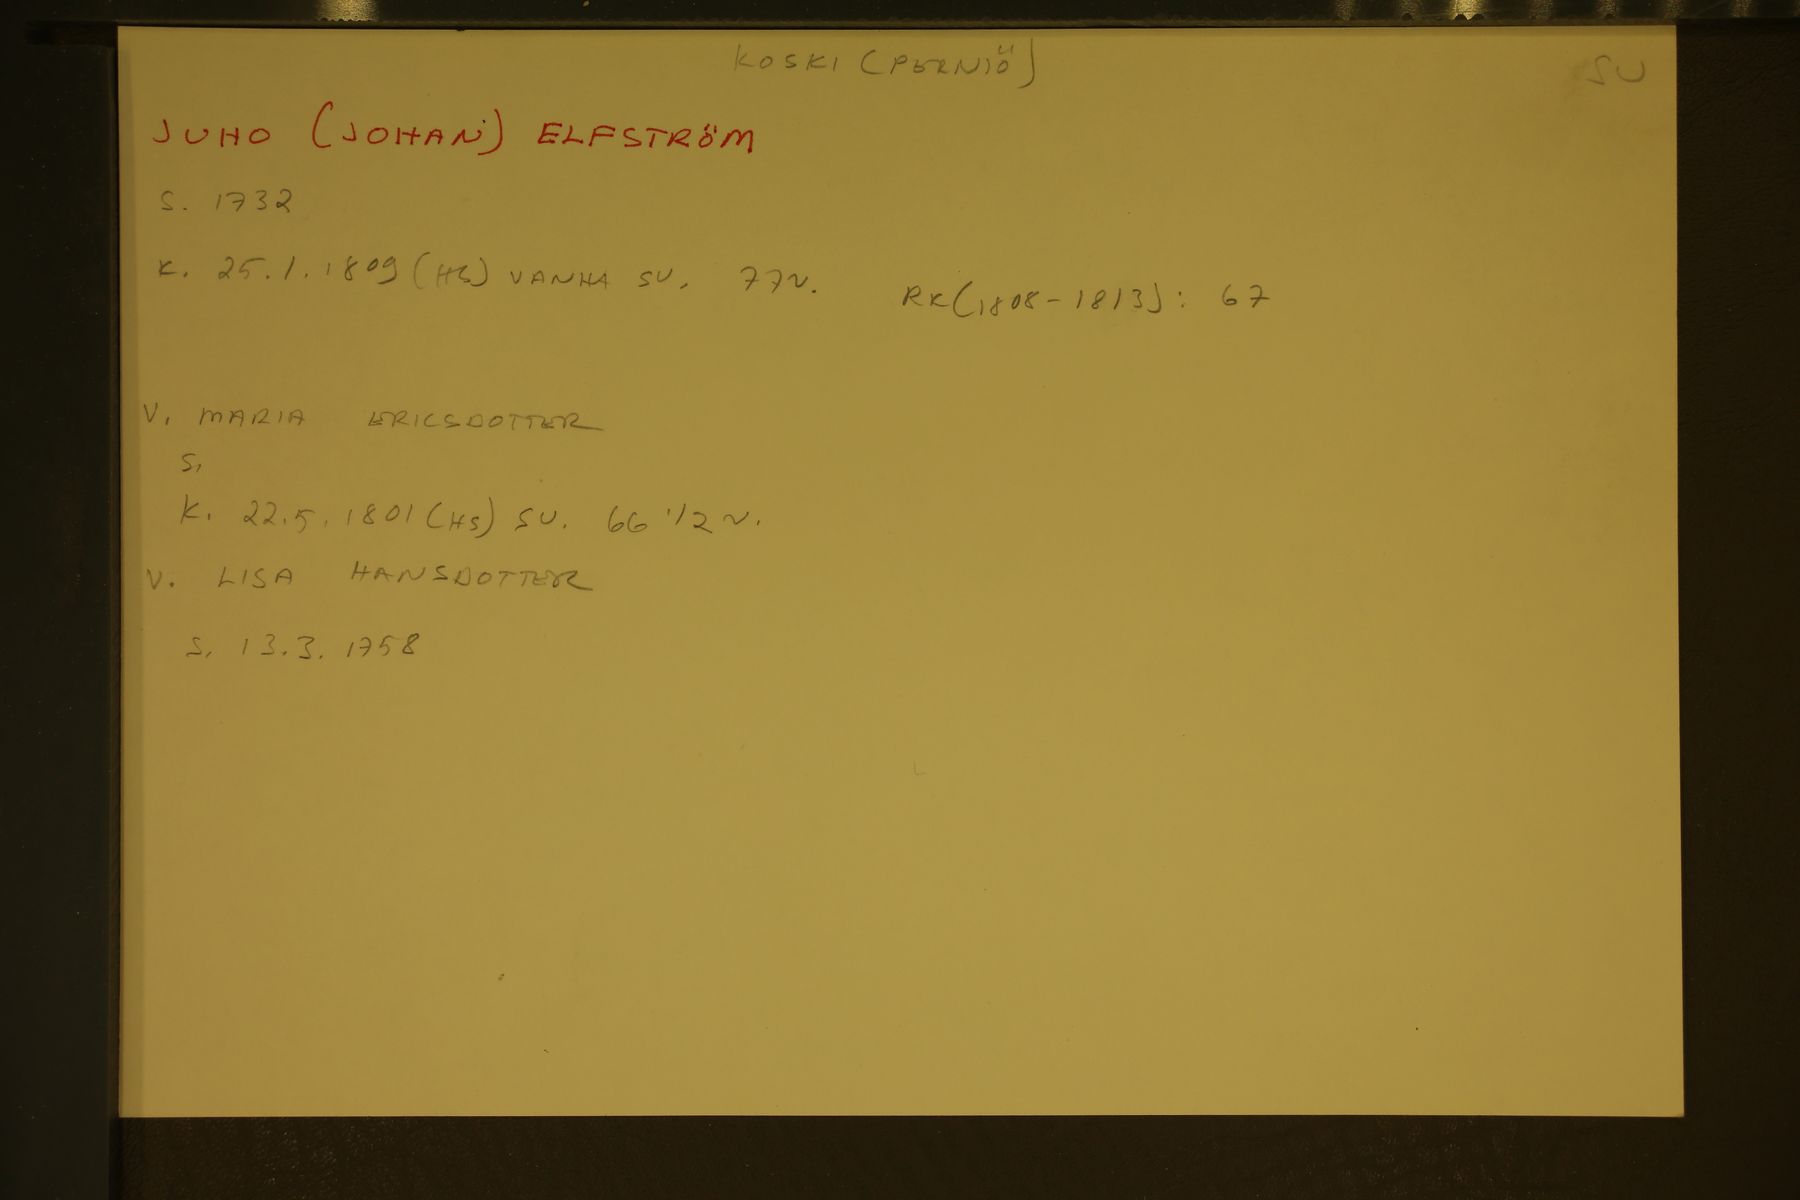 KOSKI (PERNIÖ)
SU
JUHO (JOHAN) ELFSTRÖM
S. 1732
K. 25.1.1809 (HS) VANHA SU. 77 V.
RK (1808-1813): 67
V. MARIA ERICSDOTTER
S.
K. 22.5.1801 (HS) SU. 66 1/2 V.
V. LISA HANSDOTTER
S. 13.3.1758